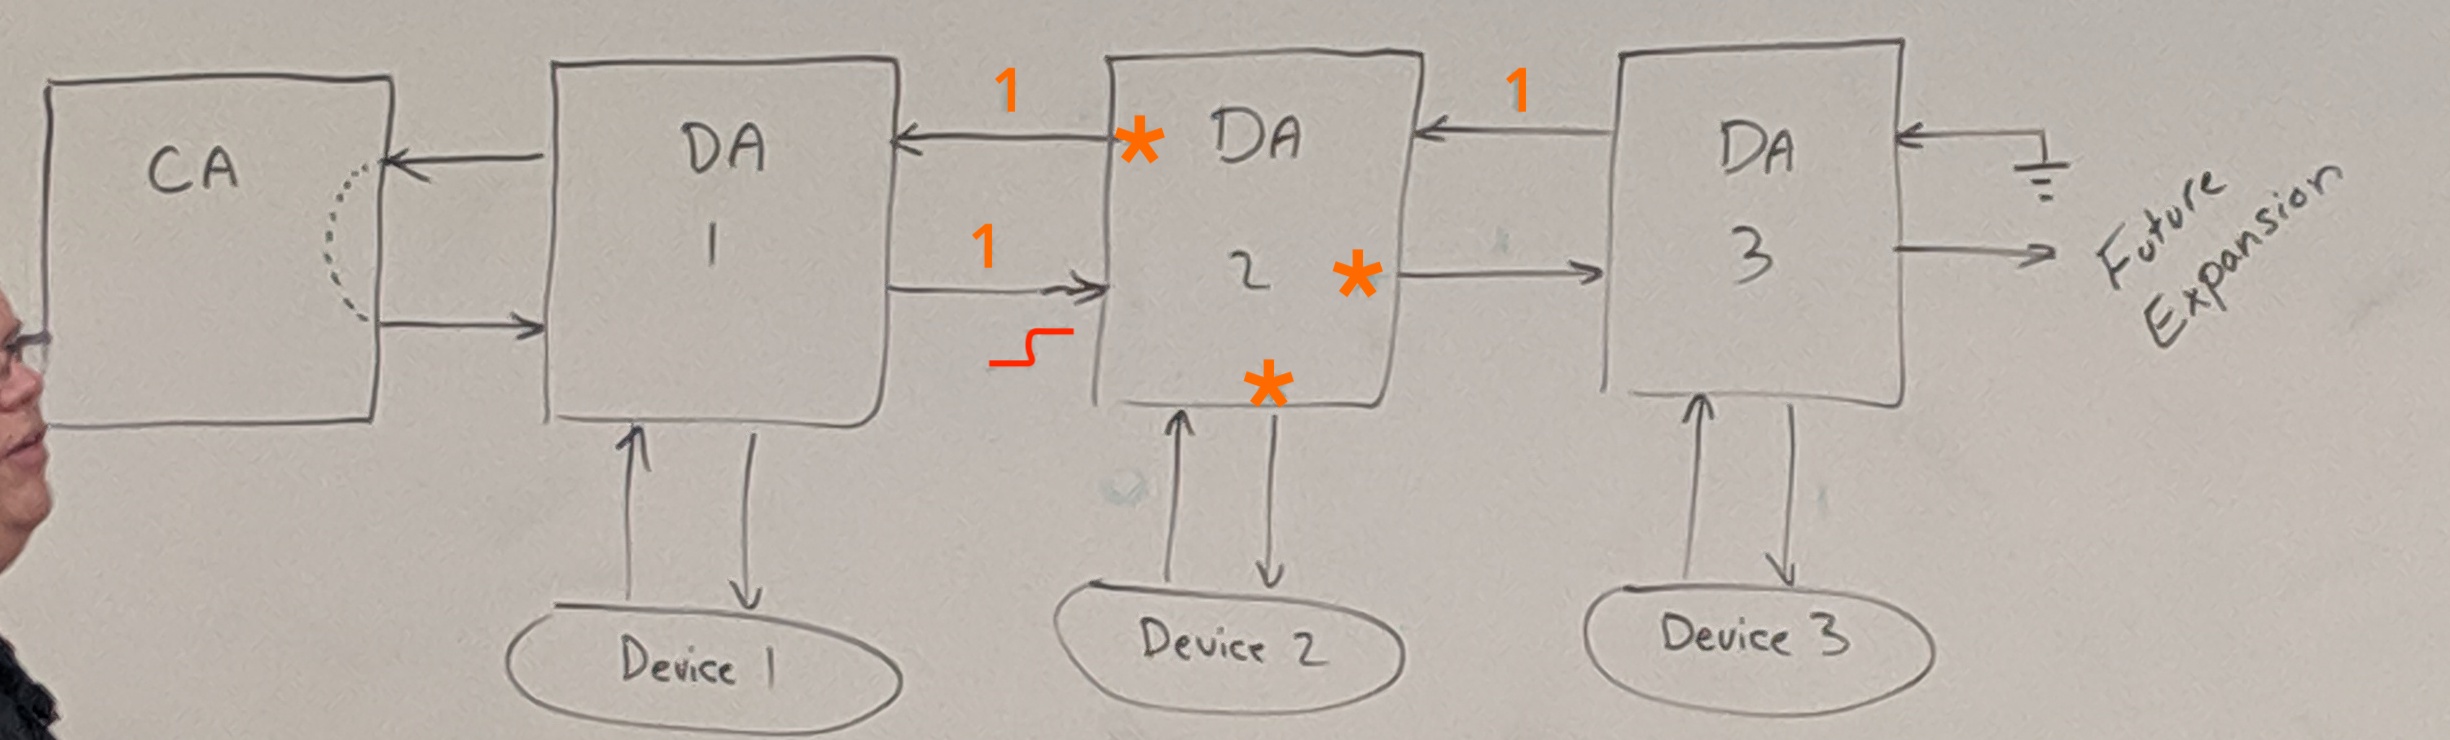 CA
DA
1
1
1
*
DA
2
*
*
1
DA
3
Future
Expansion
Device 1
Device 2
Device 3